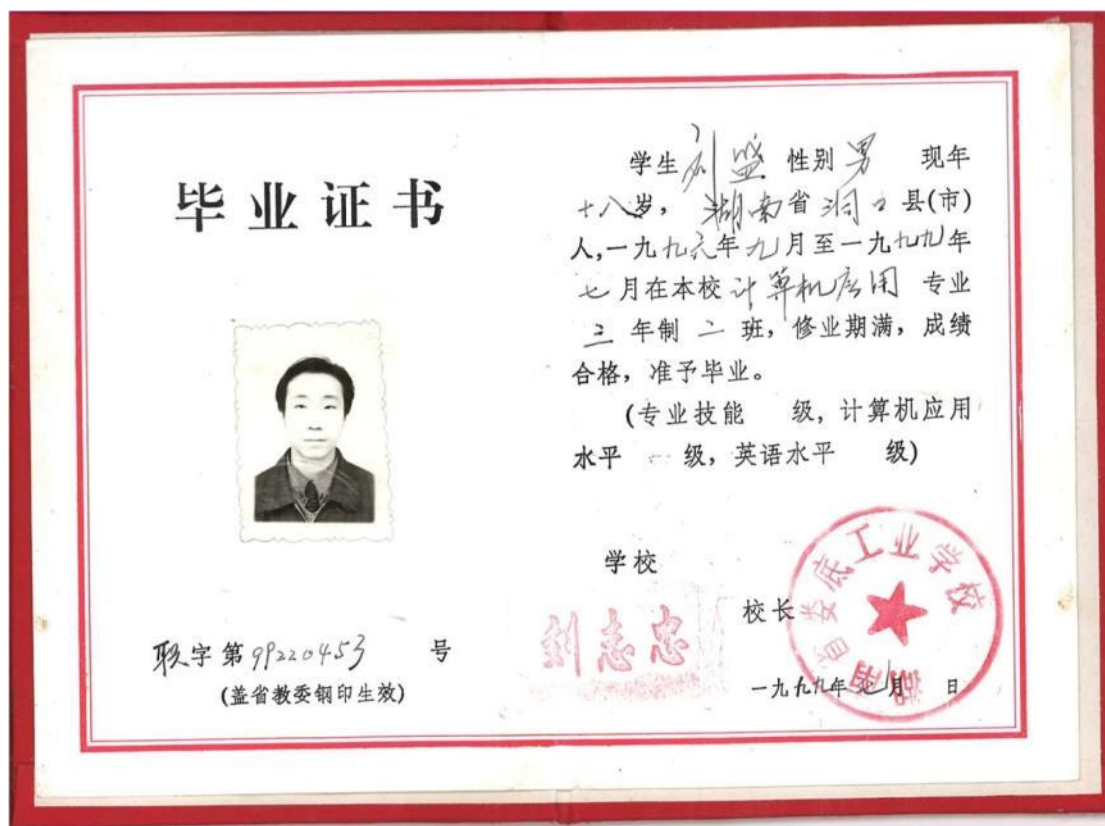 毕业证书
职字第99220453号
(盖省教委钢印生效)
学生刘盛 性别男 现年
十八岁, 湖南省洞口县(市)
人,一九九六年九月至一九九九年
七月在本校计算机应用专业
三年制二班, 修业期满, 成绩
合格, 准予毕业。
(专业技能 级, 计算机应用
水平 一 级, 英语水平 级)
学校
校长
刘志忠
湖南省娄底工业学校
一九九九年七月 日